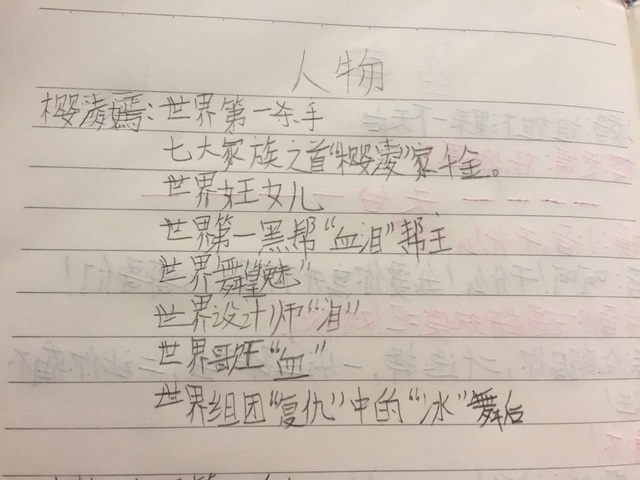 人物
樱凌嫣:世界第一杀手
七大家族之首“樱凌”家千金。
世界女王女儿
世界第一黑帮“血泪”帮主
世界舞皇“魅”
世界设计师“泪”
世界歌王“血”
世界组团“复仇”中的“冰”舞后